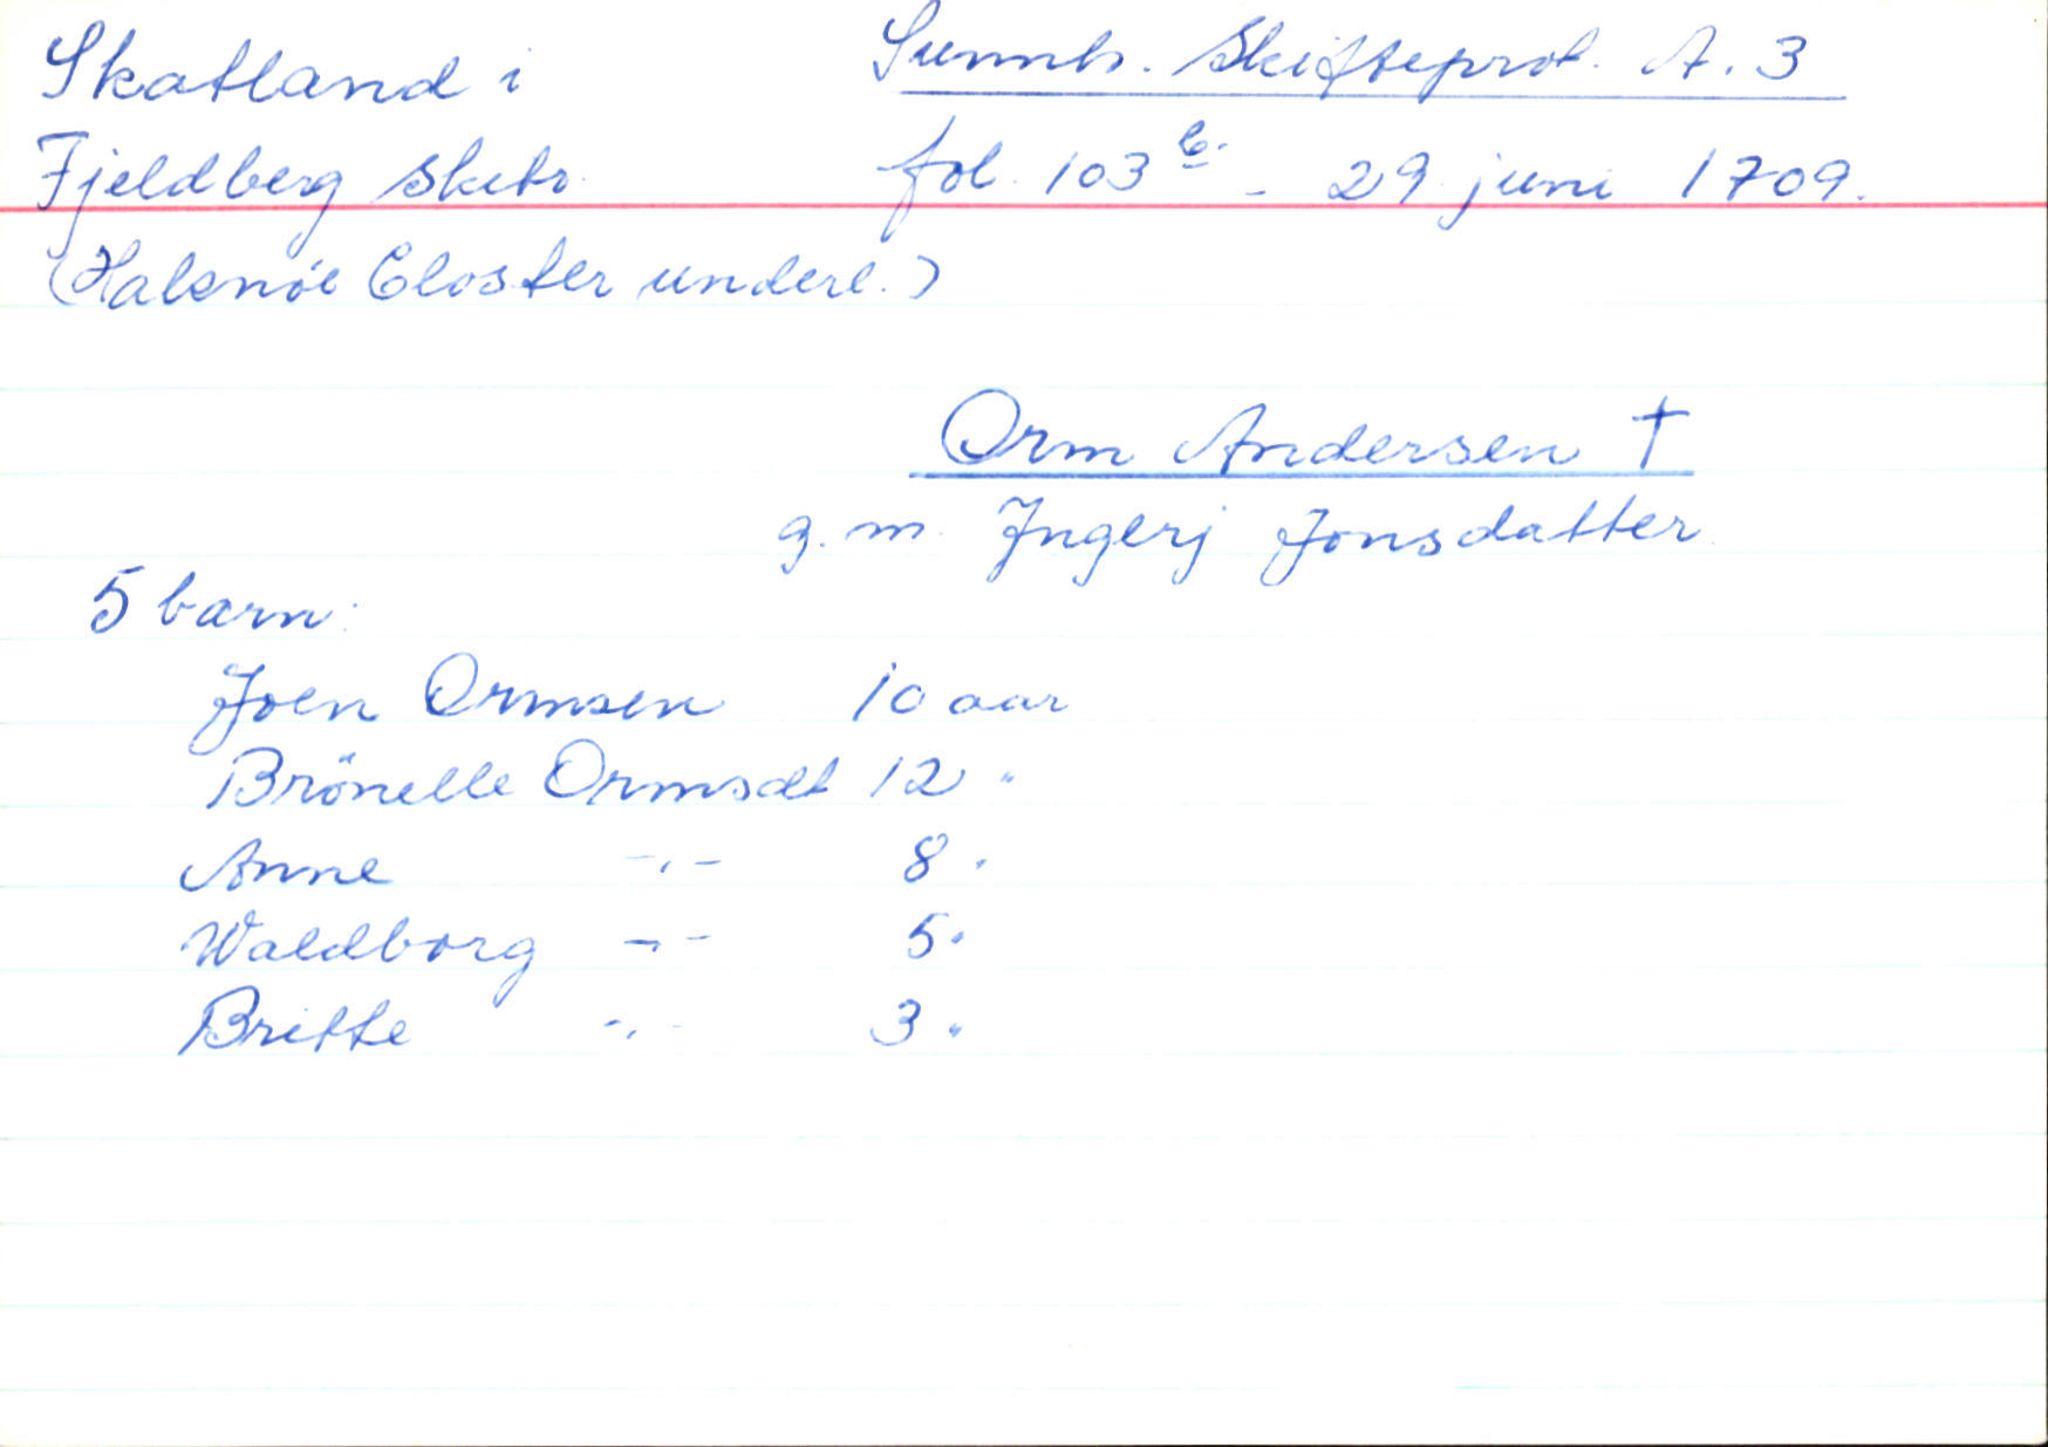 Skatland i
Fjeldberg Skibr.
(Halsnöe Closter underl.)
Sunnh. Skifteprot. A. 3
fol. 103 b. - 29 juni 1709.
Orm Andersen †
g. m. Ingerj Jonsdatter
5 barn:
Joen Ormsen 10 aar
Brönelle Ormsdt 12 "
Anne -"- 8 "
Waldborg -"- 5 "
Britte -"- 3 "